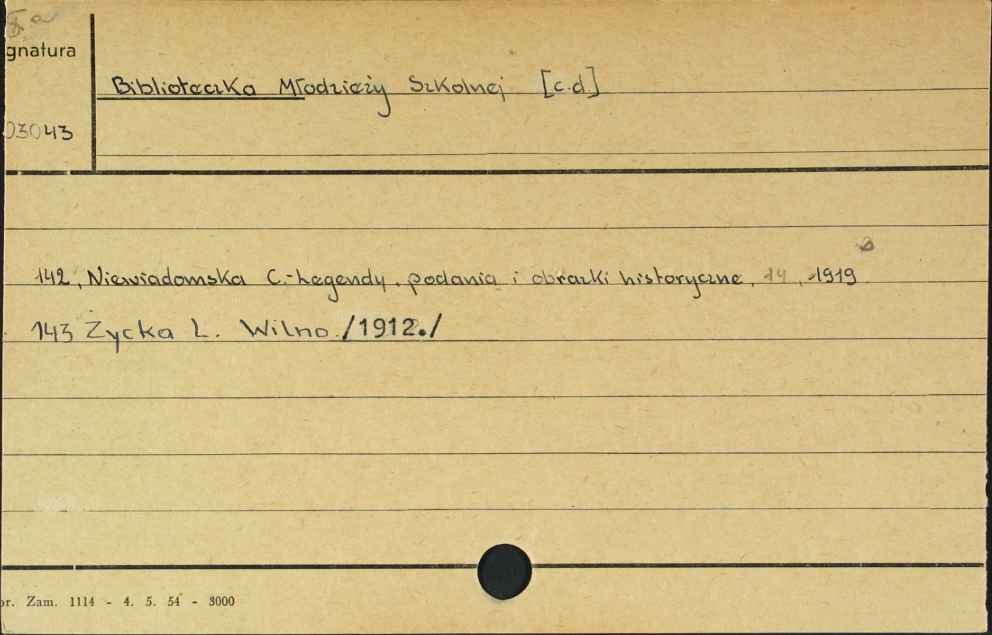 gnatura
Biblioteczka Młodzieży Szkolnej [c.d]
03043
142, Niewiadomska C.-Legendy, podania i obrazki historyczne, 14, 1919
143 Zycka L. Wilno /1912./
or. Zam. 1114 - 4. 5. 54 - 3000